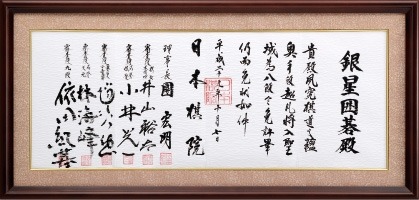 銀星囲碁殿
貴殿夙究棋道之蘊
奥手段超凡将入聖
域為八段令免許畢
仍而免状如件
平成二十三年十月七日
日本棋院
理事長 團宏明
井山裕太
小林光一
林海峰
依田紀基